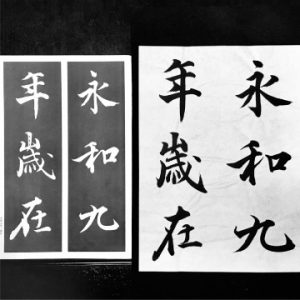 永和九
年歲在
永和九
年歲在